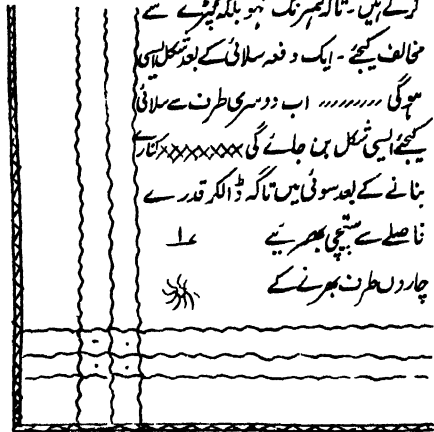 کرتے ہیں۔ تاگہ ہمرنگ ہو بلکہ کپڑے سے
مخالف کیجئے۔ ایک دفعہ سلائی کے بعد شکل ایسی
ہوگی ،،،،،،،،، اب دوسری طرف سے سلائی
کیجئے ایسی شکل بن جائے گی ××××××× کنارے
بنانے کے بعد سوئی میں تاگہ ڈالکر قدرے
فاصلے سے ستیچی بھریئے
چاروں طرف بھرنے کے